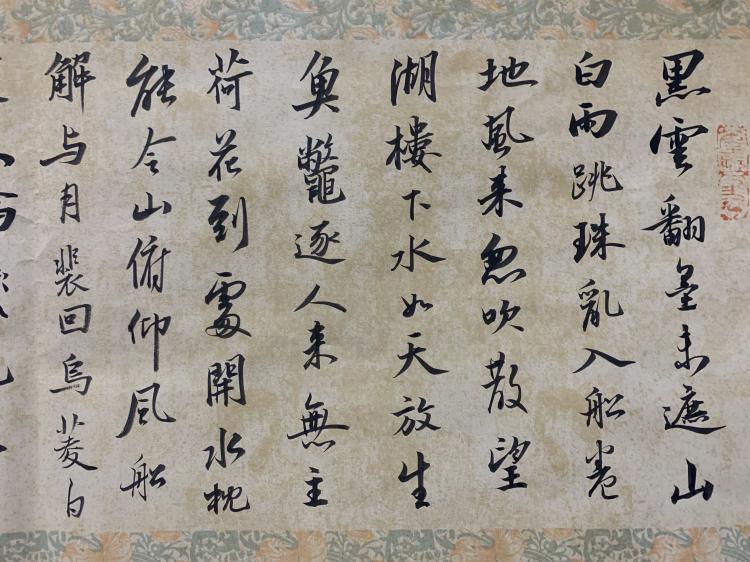 黒雲翻墨未遮山
白雨跳珠亂入船卷
地風来忽吹散望
湖樓下水如天放生
魚鼈逐人来無主
荷花到處開水枕
能令山俯仰風船
解与月裴回烏菱白